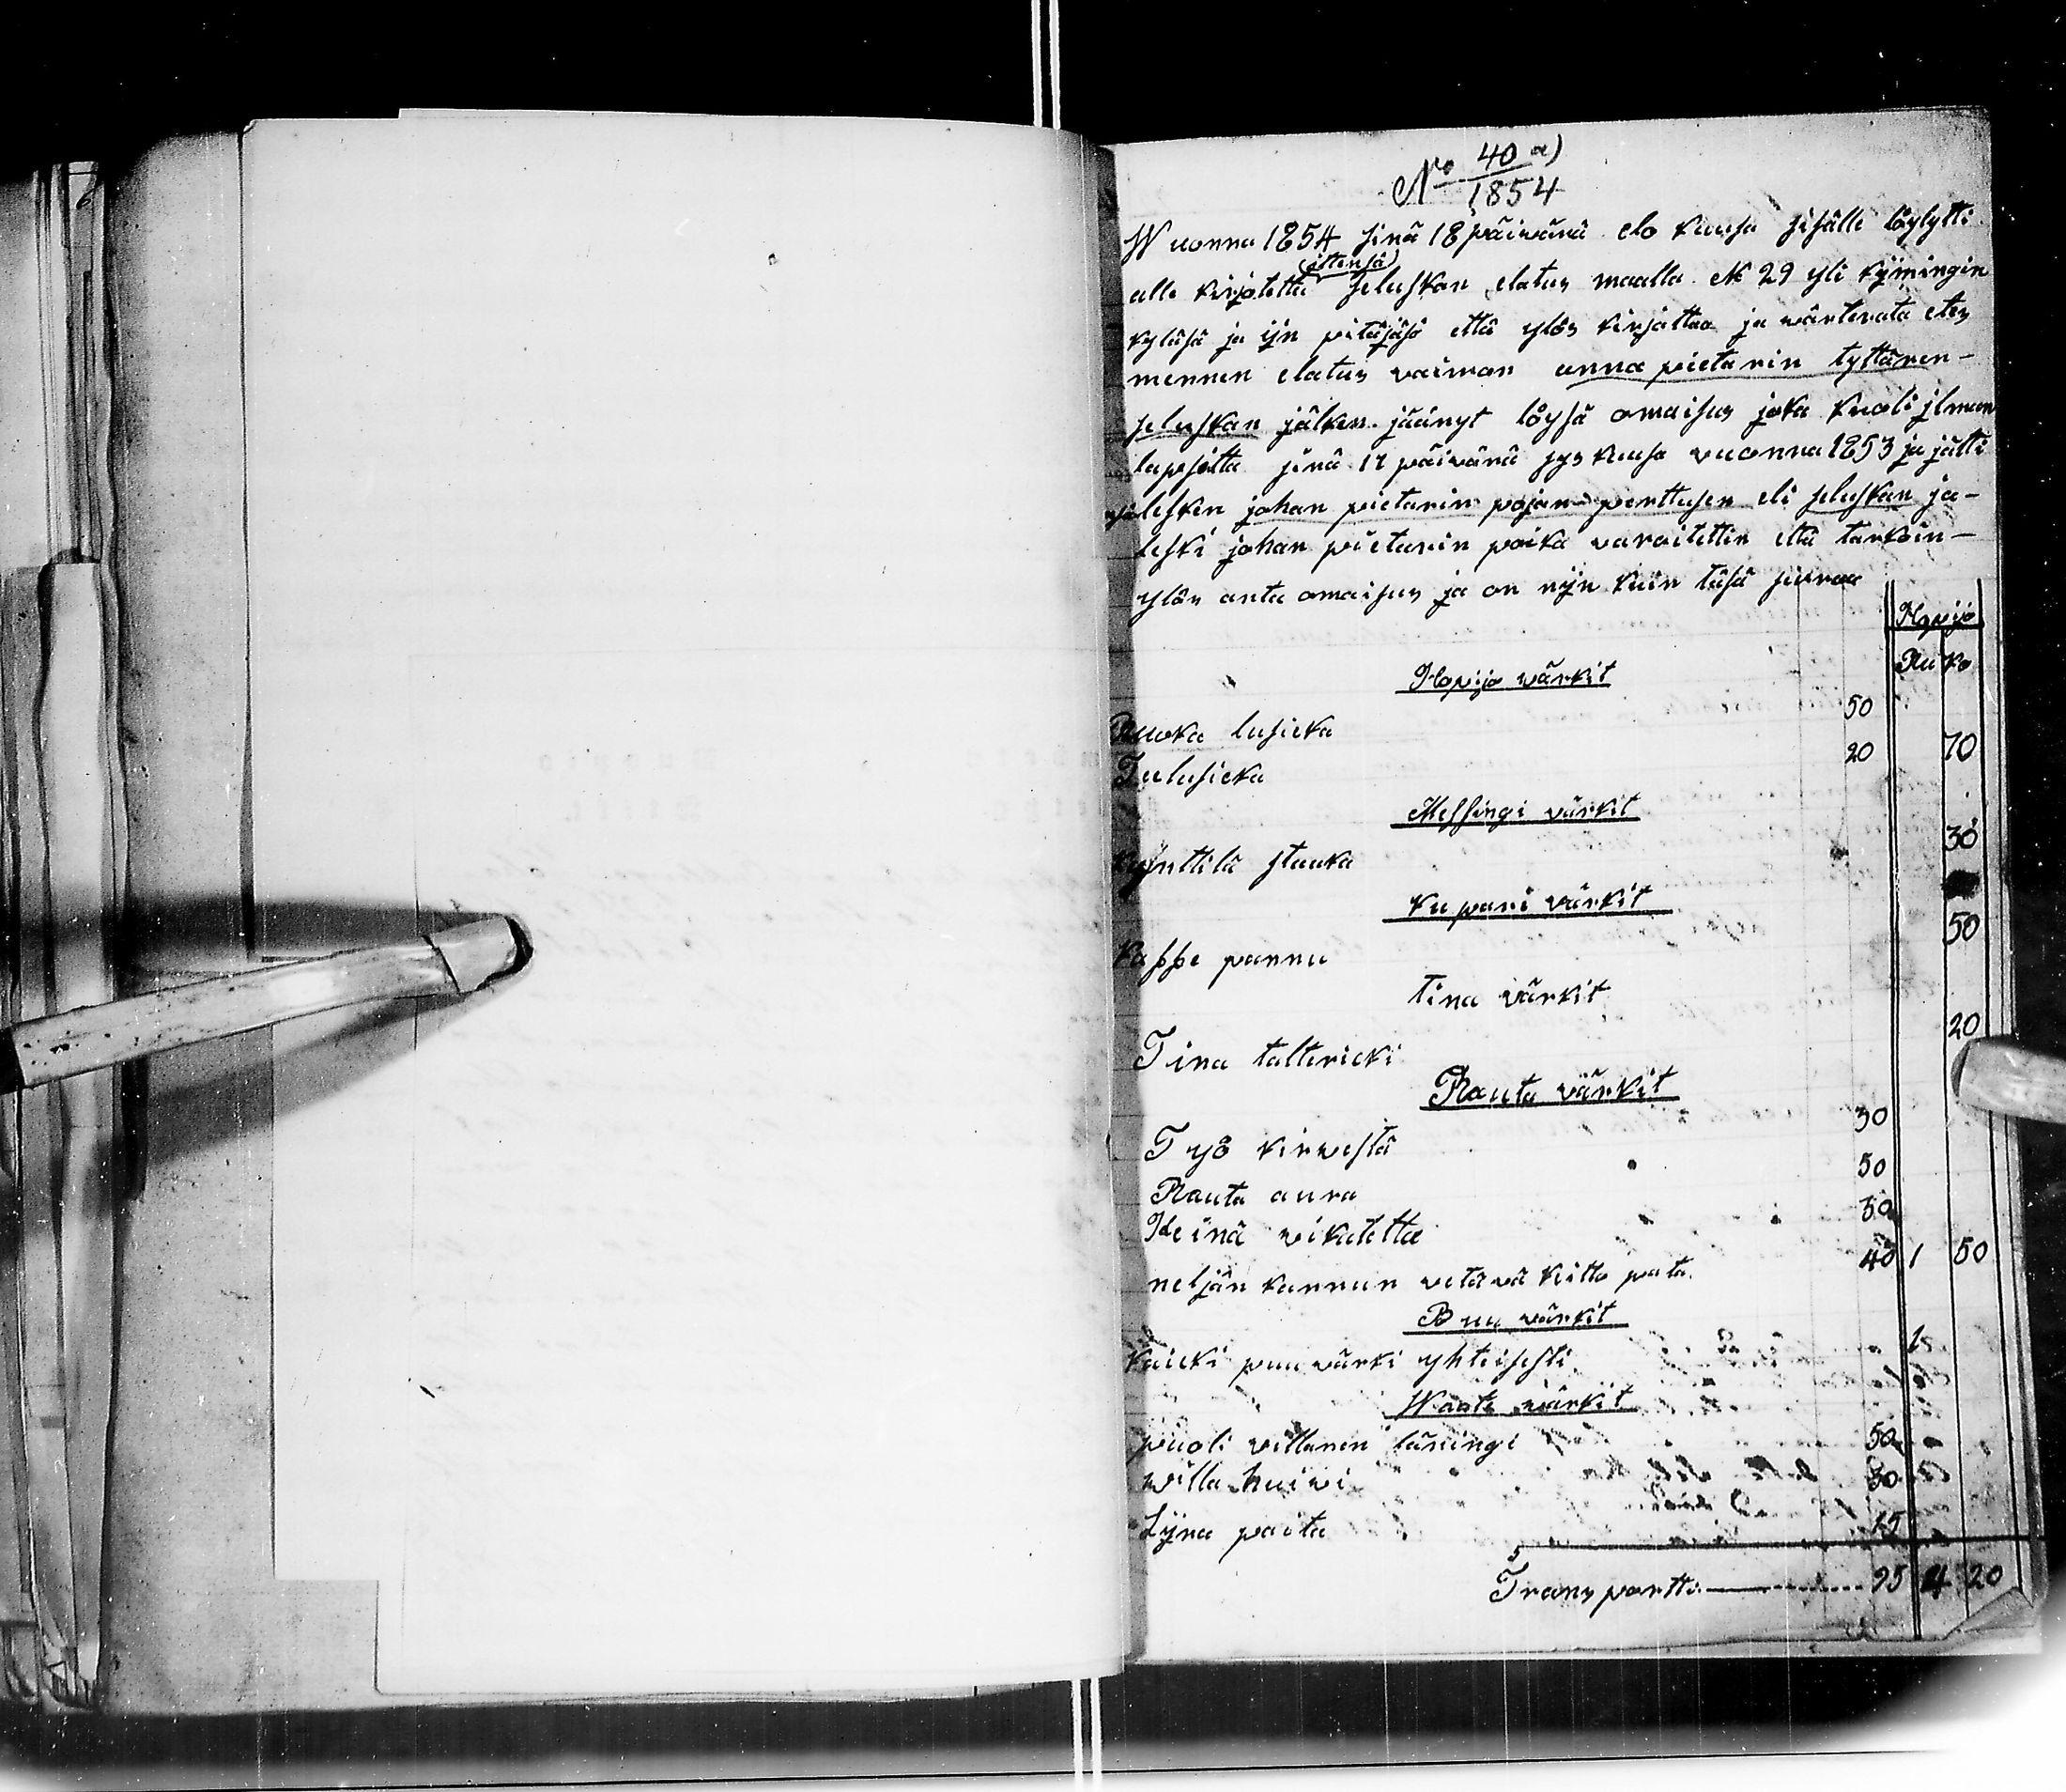 No 40 a)
1854
Wuonna 1854 sinä 18 päiwänä elo kuusa sisälle löylytti
(ittensä)
alle kirjotettu seluskan elatus maalla No 29 yli kijmingin
kyläsä ja ijn pitäjäsä että ylös kirjattaa ja wärterata etes
mennen elatus vaimon anna pietarin tyttären-
seluskan jälken jäänyt löysä omaisus joka kuoli jlman
lapsitta sinä 17 päiwänä sys kuusa vuonna 1853 ja jätti
lesken johan pietarin pojan perttusen eli seluskan ja-
leski johan pietarin poika varoitettin että tarkoin-
ylös anta omaisus ja on nijn kuin täsä seuraa
Hopija
Ru ko
Hopija wärkit
Ruoka lusicka 50
Teelusicka 20 70
Messingi värkit
kynttilä staaka 30
Kupari värkit
Kaffe pannu 50
tina värkit
Tina taltericki 20
Rauta värkit
Työ kirwestä 30
Rauta aura 50
Heinä wikatetta 50
neljän kannun vetävä kiitto pata 40 1 50
Buu värkit
kaicki puu värki yhteisesti 1
Waate värkit
puoli villanen täningi 50
willa huiwi 30
Lijna paita 15
Transportti 95 4 20